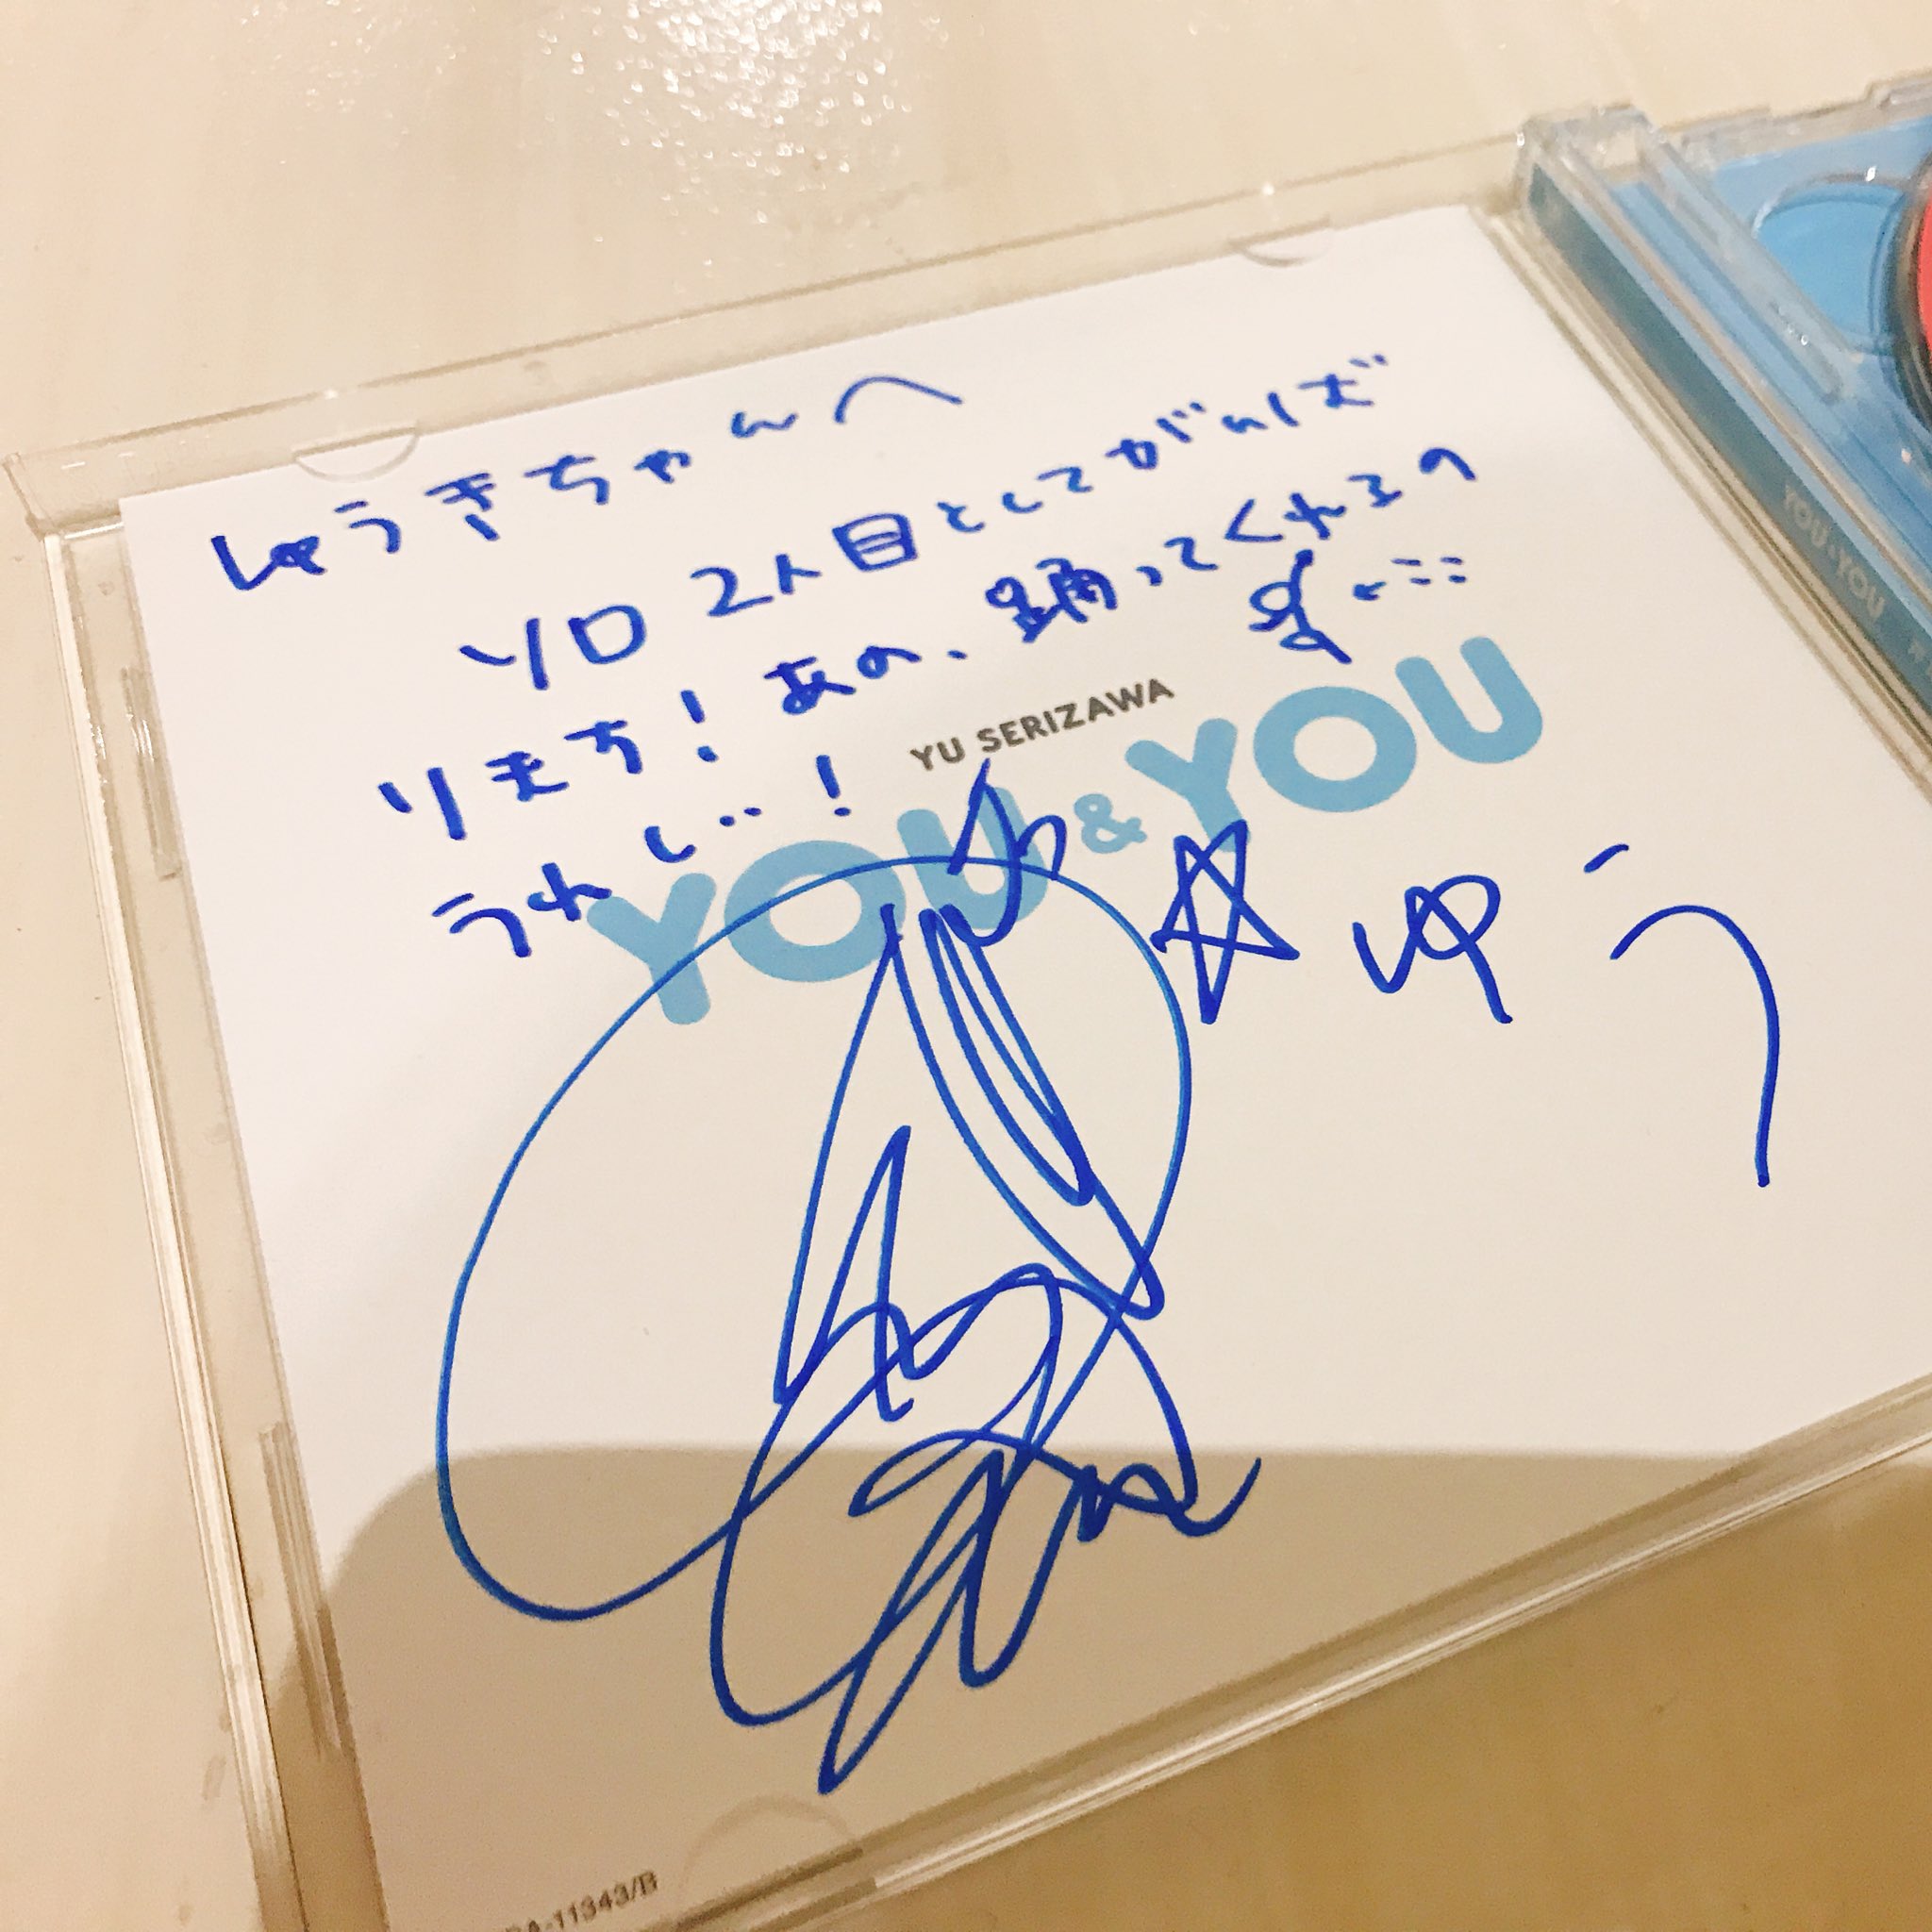 しゅうきちゃんへ
ソロ2人目としてがんば
ります！あの、踊ってくれるの
←ここ
うれし‥！
YU SERIZAWA
YOU & YOU
☆ゆう
YOU & YOU
A-11343/B